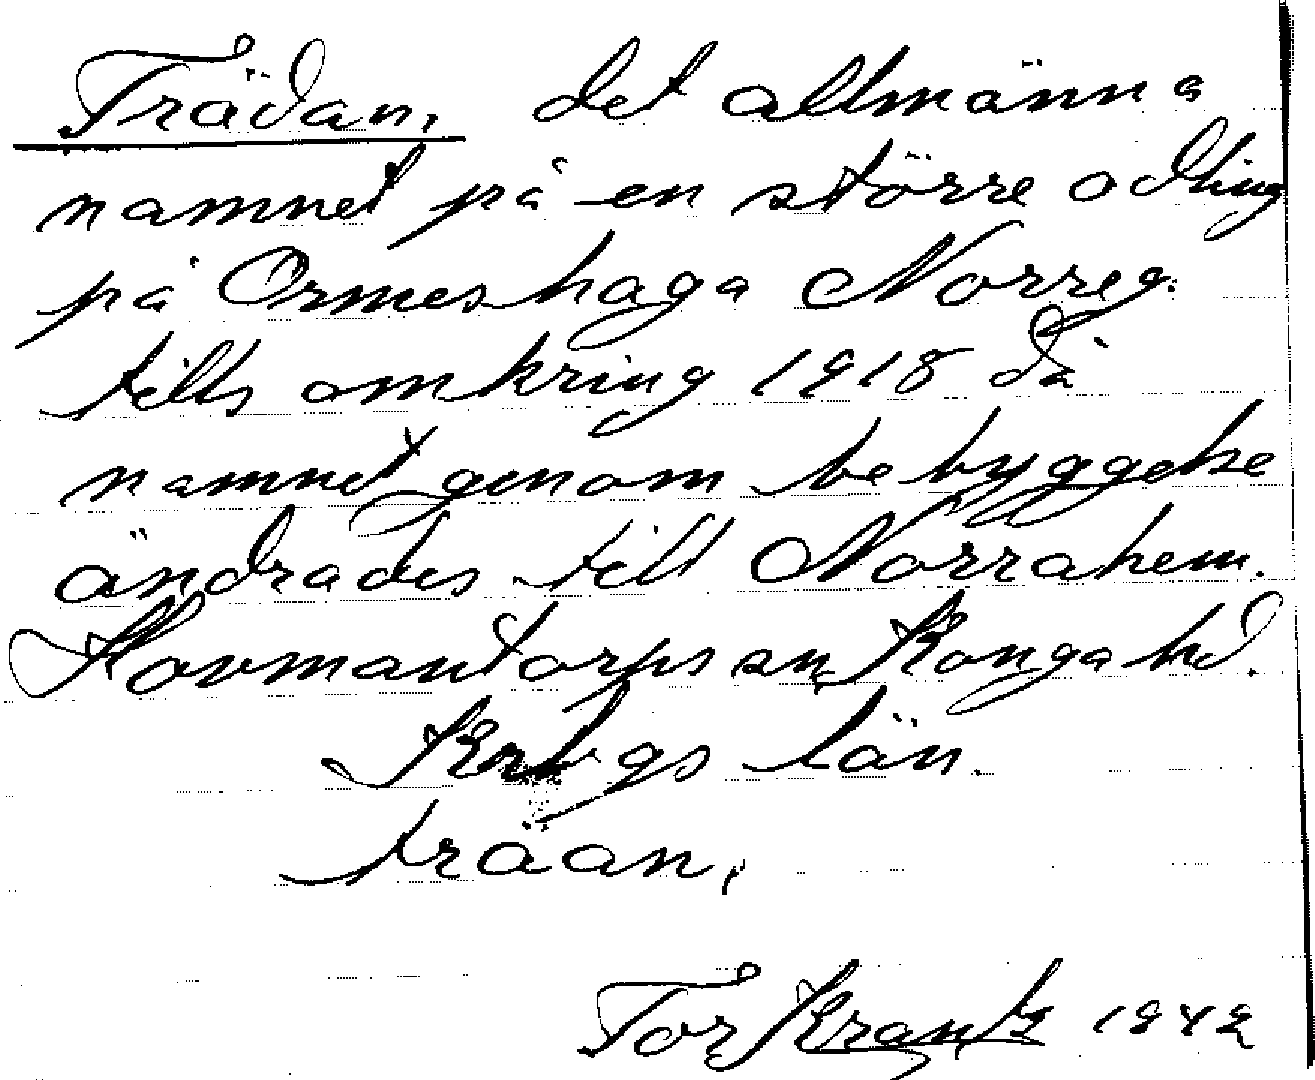 Trädan, det allmänna
namnet på en större odling
på Ormeshaga Norreg.
tills omkring 1918 då
namnet genom bebyggelse
ändrades till Norrahem.
Hovmantorps sn, Konga hd.
Krbgs län.
träan,
Tor Krantz 1942